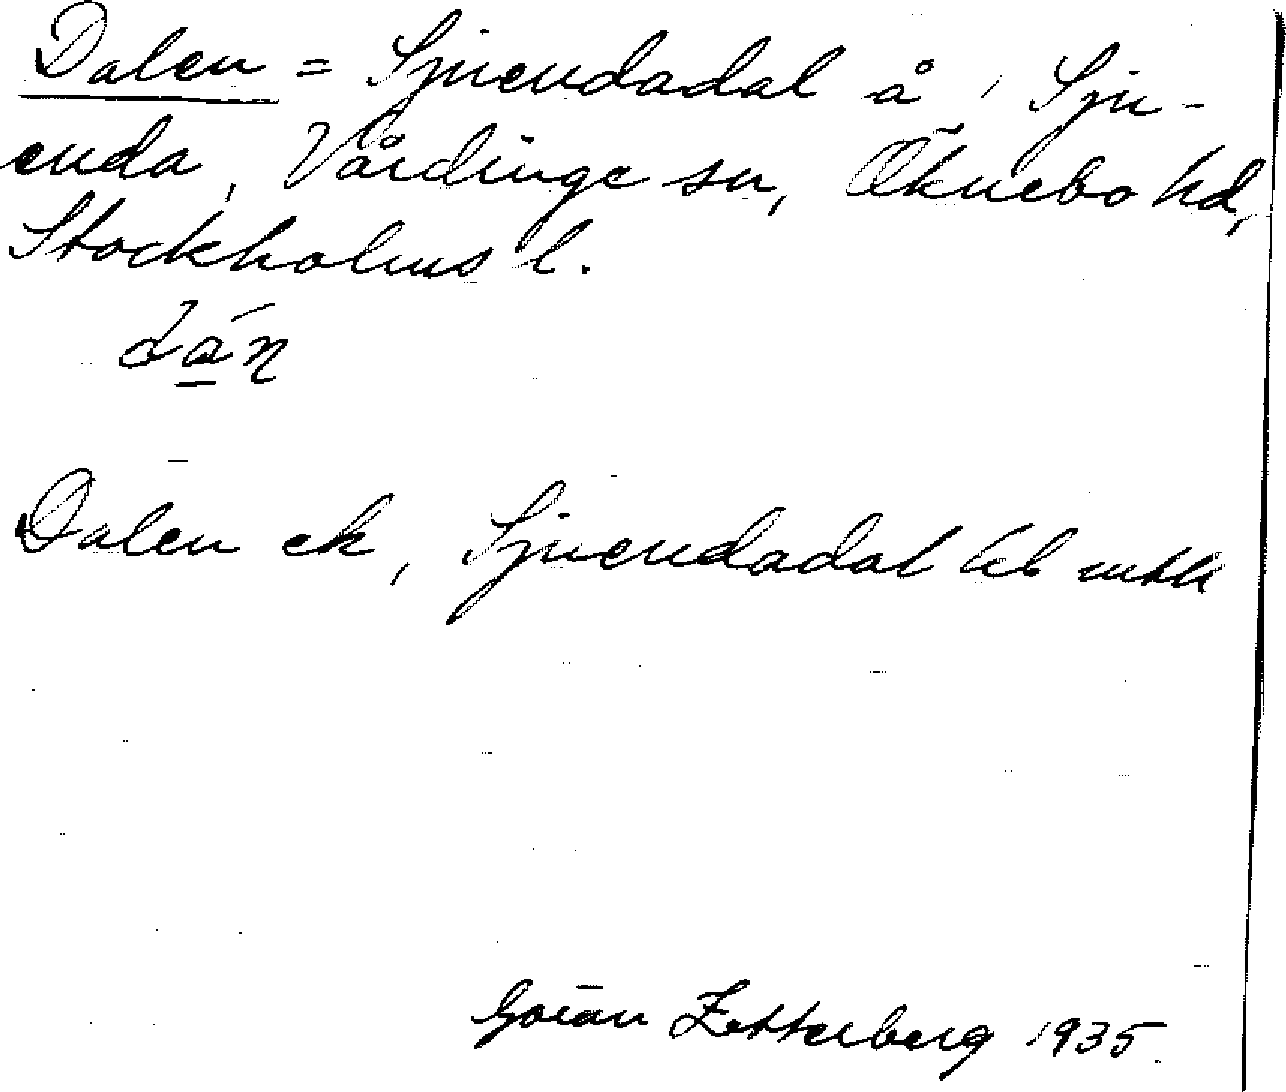 Dalen = Sjuendadal å, Sju-
enda, Vårdinge sn, Öknebo hd,
Stockholms l.
dán
Dalen ek, Sjuendadal lhb
Göran Zetterberg 1935.